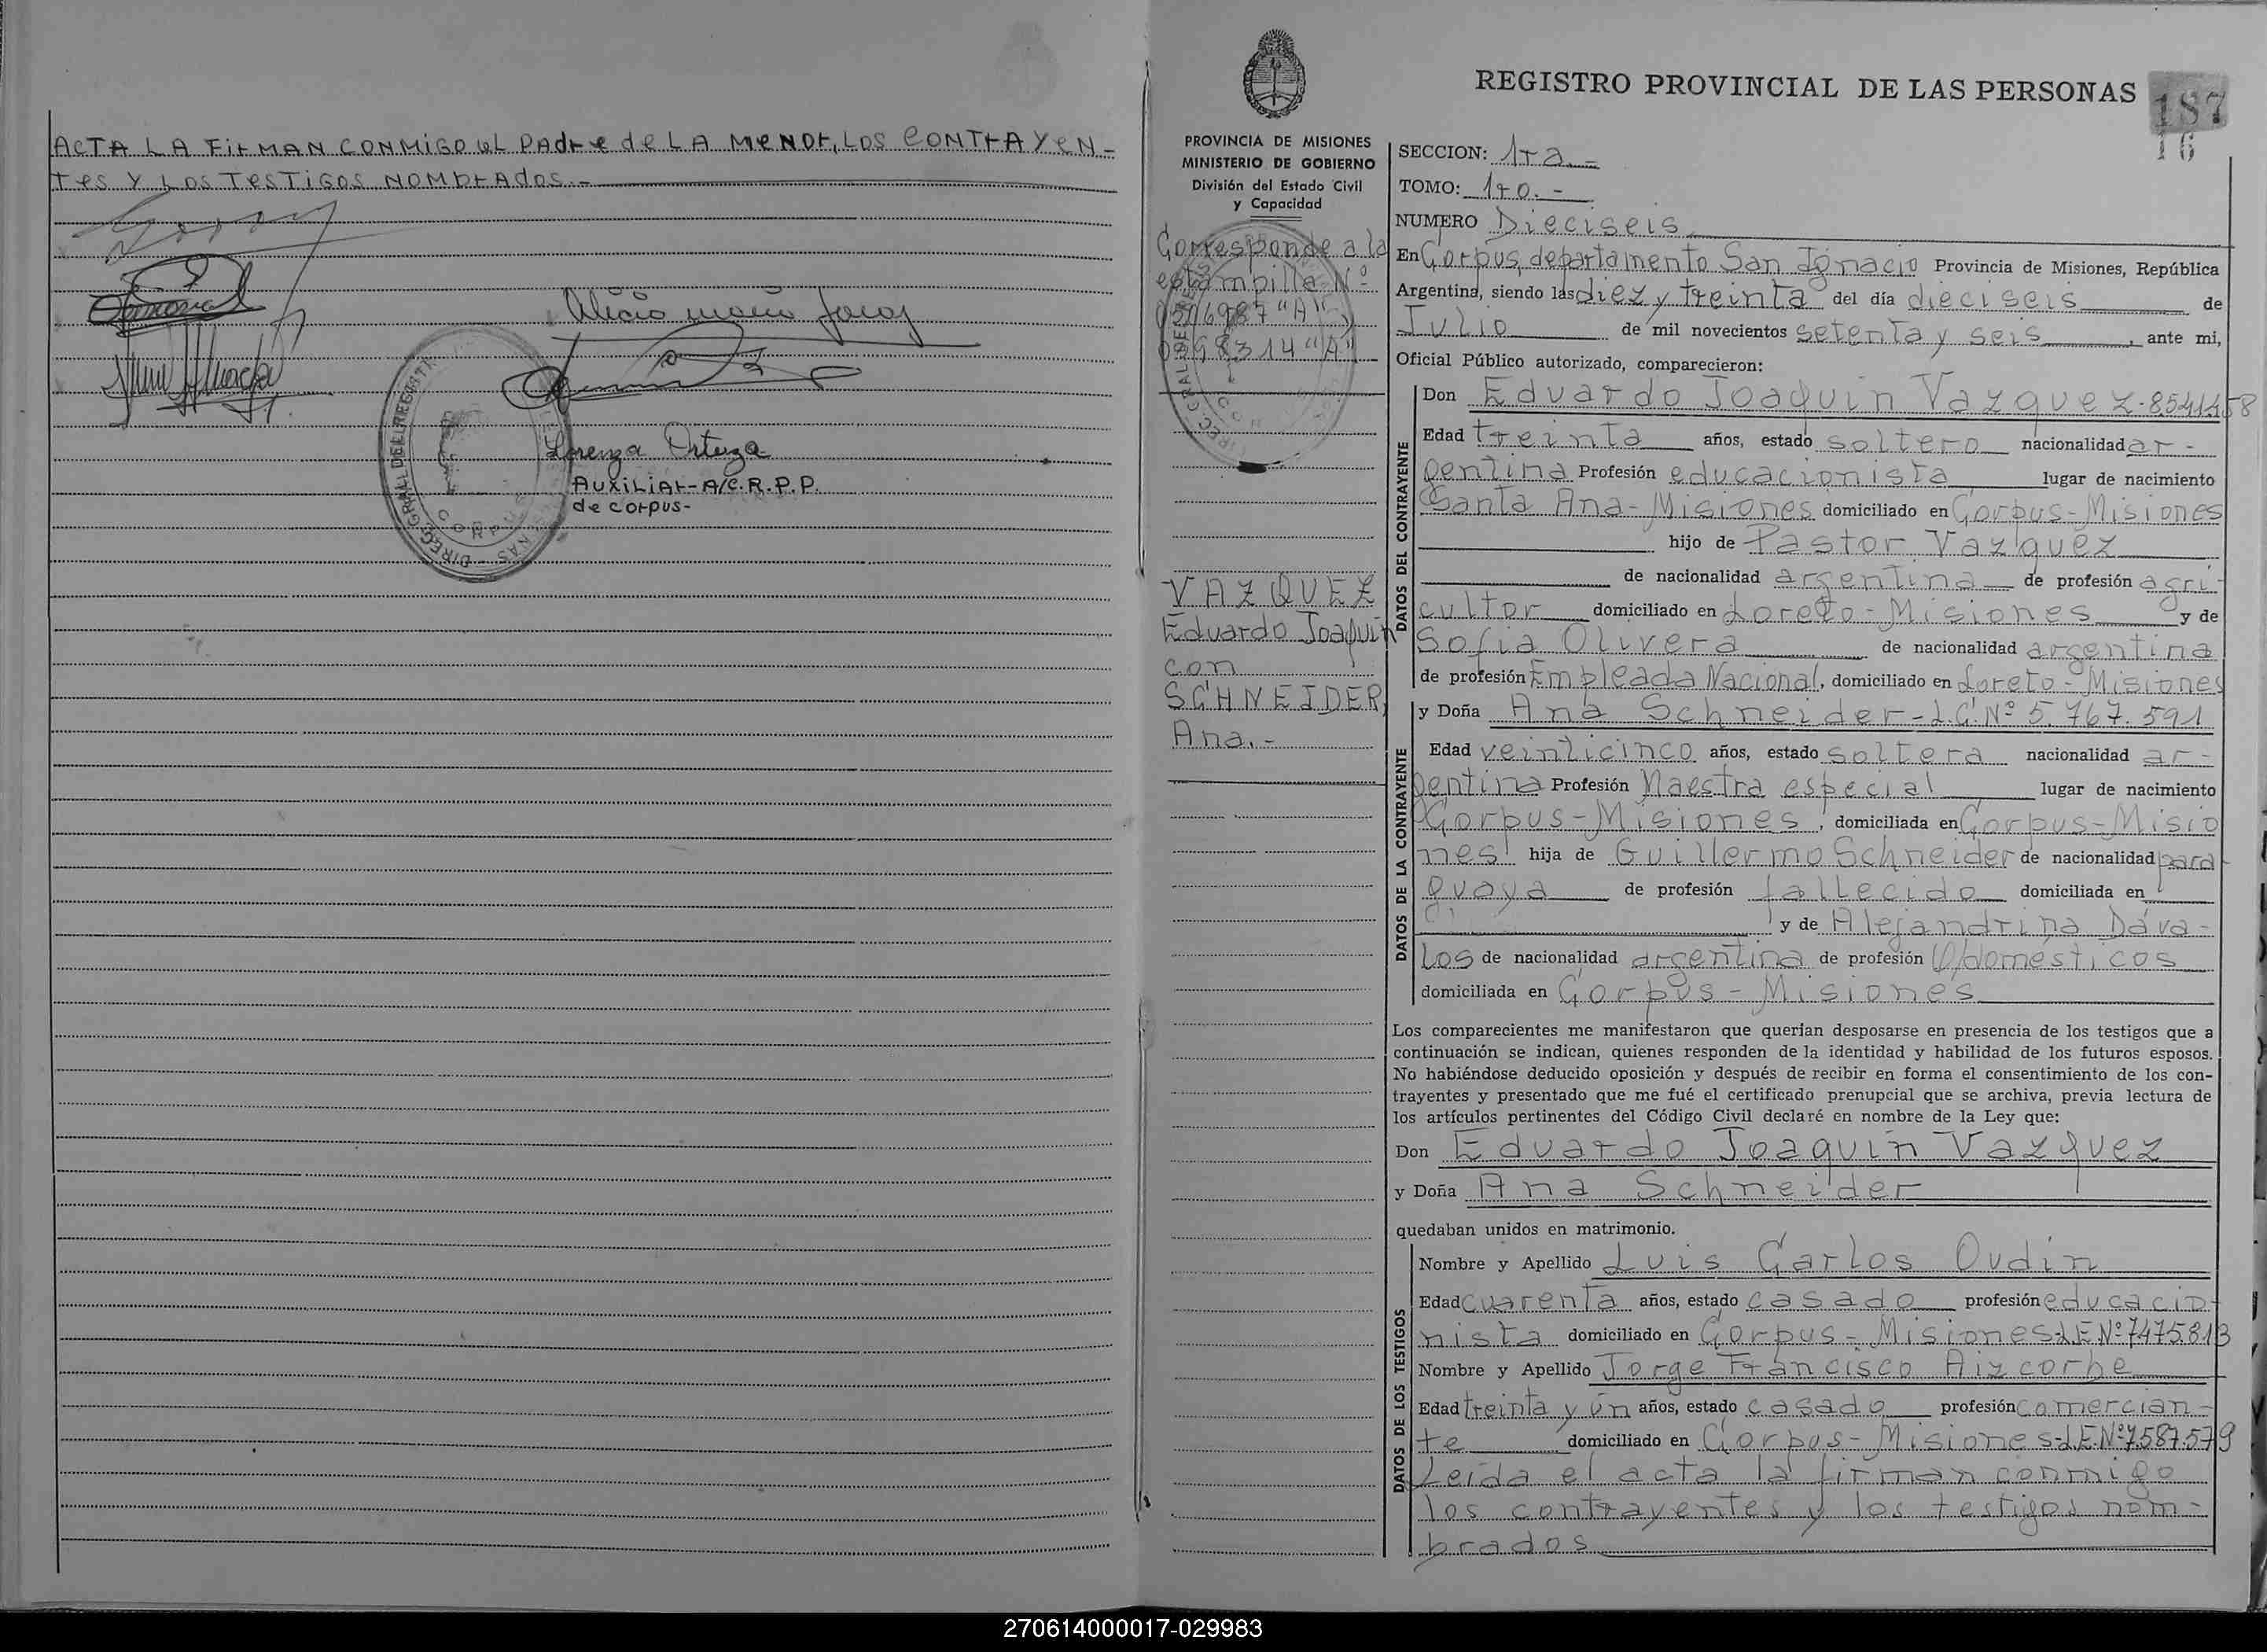 ACTA LA FIRMAN CONMIGO EL PADRE DE LA MENOR, LOS CONTRAYEN-
TES Y LOS TESTIGOS NOMBRADOS.-
Lorenza Ortega
AUXILIAR-A/C.R.P.P.
de CORPUS-
REGISTRO PROVINCIAL DE LAS PERSONAS
187
16
PROVINCIA DE MISIONES
MINISTERIO DE GOBIERNO
División del Estado Civil
y Capacidad
Corresponde a la
estampilla Nº
"A"
"A"
VAZQUEZ
Eduardo Joaquin
con
SCHNEIDER,
Ana.-
SECCION: 1ra.-
TOMO: 1ro.-
NUMERO Dieciseis
En Corpus, departamento San Ignacio Provincia de Misiones, República
Argentina, siendo las diez y treinta del día dieciseis de
Julio de mil novecientos setenta y seis, ante mi,
Oficial Público autorizado, comparecieron:
DATOS DEL CONTRAYENTE
Don Eduardo Joaquin Vazquez-
Edad treinta años, estado soltero nacionalidad ar-
gentina Profesión educacionista lugar de nacimiento
Santa Ana-Misiones domiciliado en Corpus-Misiones
hijo de Pastor Vazquez
de nacionalidad argentina de profesión agri-
cultor domiciliado en Loreto-Misiones y de
Sofia Olivera de nacionalidad argentina
de profesión Empleada Nacional, domiciliado en Loreto-Misiones
DATOS DE LA CONTRAYENTE
y Doña Ana Schneider-L.C.Nº 5.767.591
Edad veinticinco años, estado soltera nacionalidad ar-
gentina Profesión Maestra especial lugar de nacimiento
Corpus-Misiones, domiciliada en Corpus-Misio
nes hija de Guillermo Schneider de nacionalidad para-
guaya de profesión fallecido domiciliada en
y de Alejandrina Dáva-
los de nacionalidad argentina de profesión Q/domésticos
domiciliada en Corpus-Misiones
Los comparecientes me manifestaron que querían desposarse en presencia de los testigos que a
continuación se indican, quienes responden de la identidad y habilidad de los futuros esposos.
No habiéndose deducido oposición y después de recibir en forma el consentimiento de los con-
trayentes y presentado que me fué el certificado prenupcial que se archiva, previa lectura de
los artículos pertinentes del Código Civil declaré en nombre de la Ley que:
Don Eduardo Joaquin Vazquez
y Doña Ana Schneider
quedaban unidos en matrimonio.
DATOS DE LOS TESTIGOS
Nombre y Apellido Luis Carlos Oudin
Edad cuarenta años, estado casado profesión educacio-
nista domiciliado en Corpus-Misiones-L.E.Nº7475813
Nombre y Apellido Jorge Francisco Aizcorbe
Edad treinta y un años, estado casado profesión comercian-
te domiciliado en Corpus-Misiones-L.E.Nº7.587.579
Leida el acta la firman conmigo
los contrayentes y los testigos nom-
brados
270614000017-029983